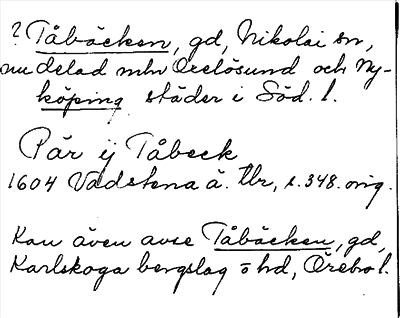 ? Tåbäcken, gd, Nikolai sn,
nu delad mln Oxelösund och Ny-
köping städer i Söd. l.
Pär ij Tåbeck
1604 Vadstena ä. tbr, s. 348. orig.
Kan även avse Tåbäcken, gd,
Karlskoga bergslag o hd, Örebro l.